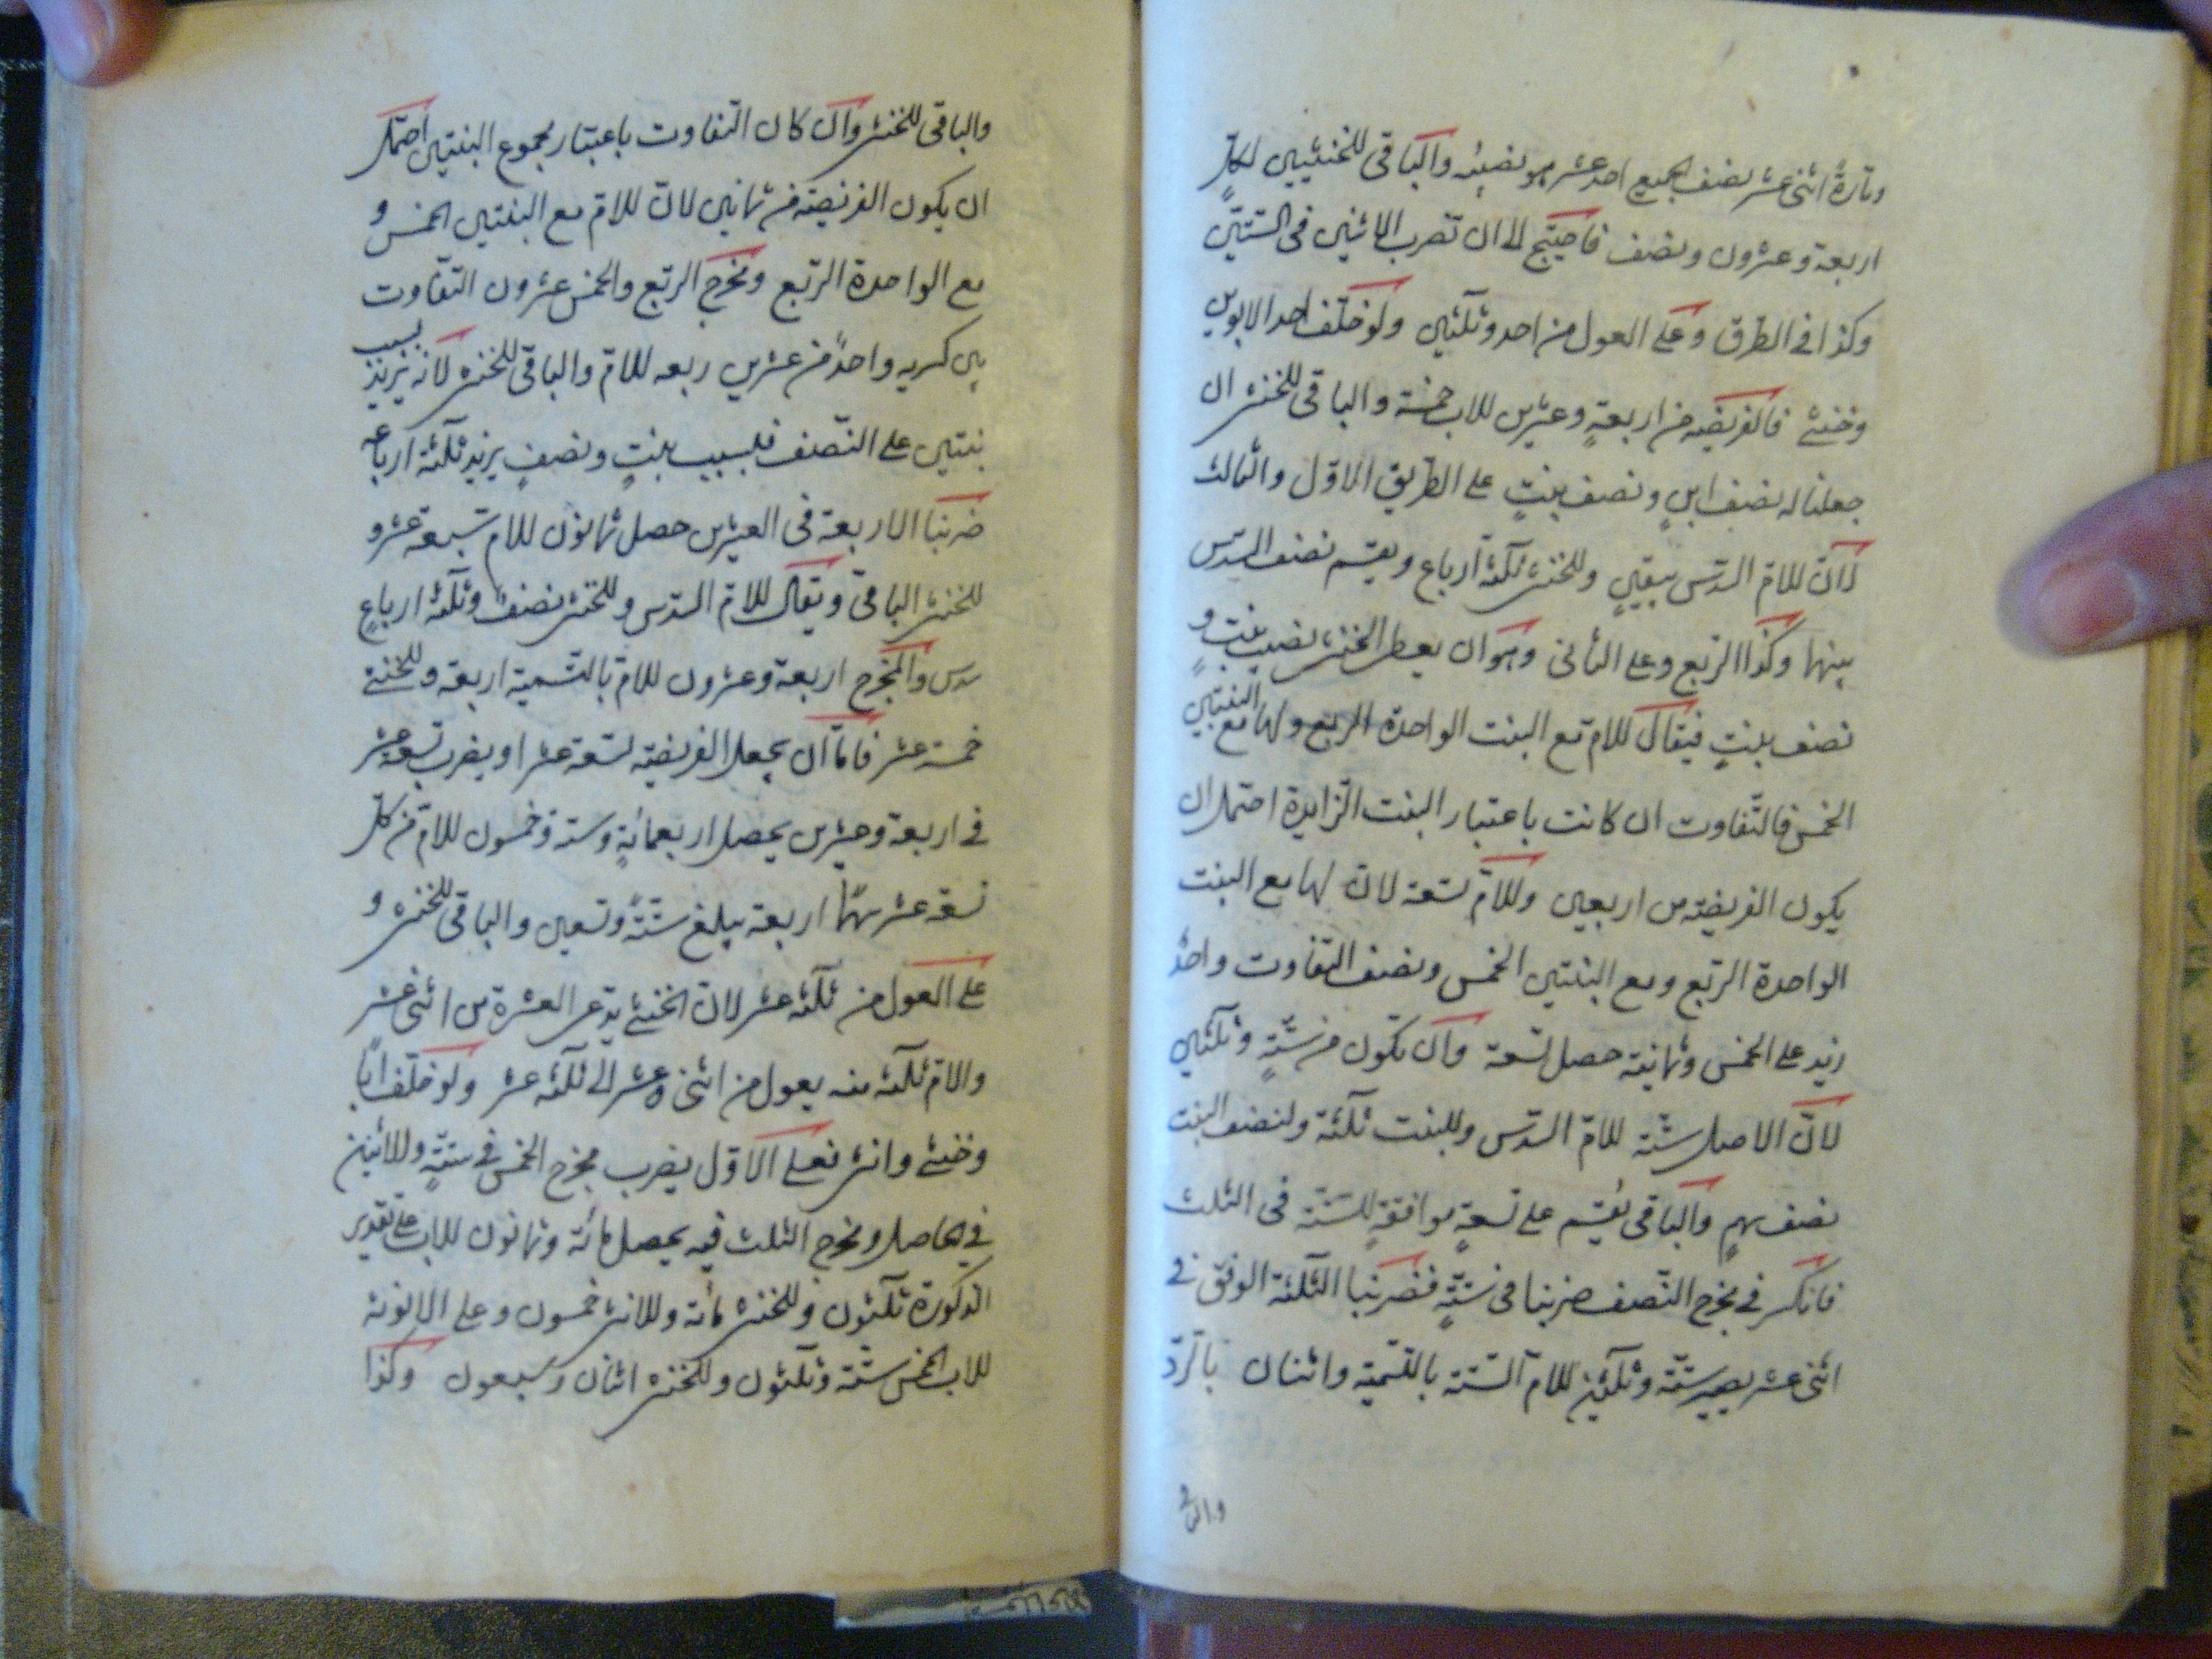 وتارةً اثنى عشر نصف الجميع احد عشر هو نصيبه والباقى للخنثيين لكلٍ
اربعة وعشرون ونصف فاحتيج الى ان تضرب الاثنين فى الستين
وكذا فى الطرق وعلى العول من احد وثلثين ولو خلف احد الابوين
وخنثى فالفريضه من اربعةٍ وعشرين للاب خمسة والباقى للخنثى ان
جعلنا له نصف ابنٍ ونصف بنتٍ على الطريق الاول والثالث
لانّ للام السّدس بيقينٍ وللخنثى ثلثة ارباع ويقسم نصف السدس
بينهما وكذا الربع وعلى الثانى وهو ان يعطى الخنثى نصيب بنتٍ و
نصف بنتٍ فيقال للام مع البنت الواحدة الربع ولها مع البنتين
الخمس فالتّفاوت ان كانت باعتبار البنت الزايدة احتمل ان
يكون الفريضة من اربعين وللامّ تسعة لانّ لها مع البنت
الواحدة الربع ومع البنتين الخمس ونصف التفاوت واحدٌ
زيد على الخمس وثمانية حصل تسعة وان تكون من ستّةٍ وثلثين
لانّ الاصل ستّة للامّ السّدس وللبنت ثلثة ولنصف البنت
نصف سهمٍ والباقى يقسم على تسعةٍ موافقةٍ للستة فى الثلث
فانكسر فى مخرج النّصف ضربنا فى ستّةٍ فضربنا الثلثة الوفق فى
اثنى عشر يصير ستّة وثلثين للام الستة بالتسمية واثنان بالردّ
والباقى للخنثى وان كان التفاوت باعتبار مجموع البنتين احتمل
ان يكون الفريضة من ثمانين لانّ للامّ مع البنتين الخمس و
مع الواحدة الربع ومخرج الربع والخمس عشرون التفاوت
بين كسريه واحدٌ من عشرين ربعه للامّ والباقى للخنثى لانه يزيد بسبب
بنتين على النّصف فلسبب بنتٍ ونصفٍ يزيد ثلثة ارباعه
ضربنا الاربعة فى العشرين حصل ثمانون للام سبعة عشر و
للخنثى الباقى ويقال للامّ السدس وللخنثى نصفٌ وثلثة ارباعٍ
سدس والمخرج اربعة وعشرون للام بالتسمية اربعة وللخنثى
خمسة عشر فامّا ان يجعل الفريضة تسعة عشر او يضرب تسعة عشر
فى اربعة وعشرين يحصل اربعمائةٍ وستة وخمسون للامّ من كل
تسعة عشر سهمًا اربعة يبلغ ستّةً وتسعين والباقى للخنثى و
على العول من ثلثه عشر لانّ الخنثى يدّعى العشرة من اثنى عشر
والامّ ثلثه منه يعول من اثنى عشر الى ثلثه عشر ولو خلف ابًا
وخنثى وانثى فعلى الاوّل يضرب مخرج الخمس فى ستّةٍ والاثنين
فى الحاصل ومخرج الثلث فيه يحصل مائة وثمانون للاب على تقدير
الذكورة ثلثون وللخنثى مأئة وللانثى خمسون وعلى الانوثة
للاب الخمس ستّة وثلثون وللخنثى اثنان وسبعون وكذا